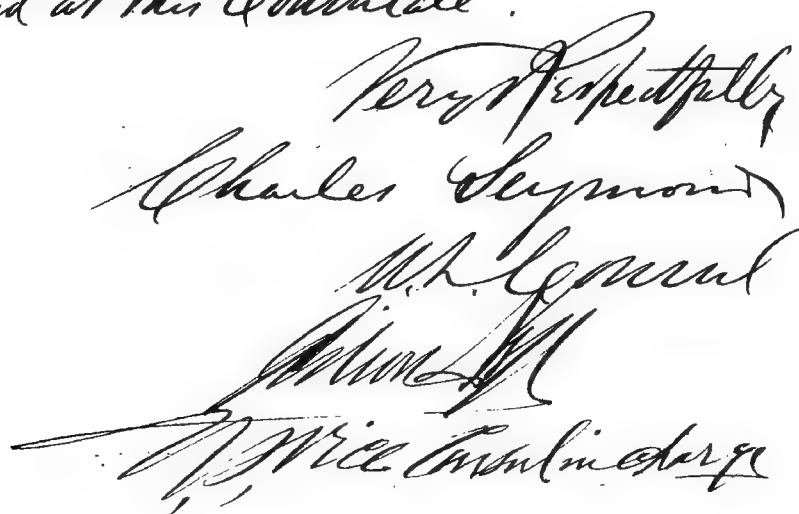 at this Consulate.
Very Respectfully
Charles Seymour
U.S. Consul
Vice Consul in charge